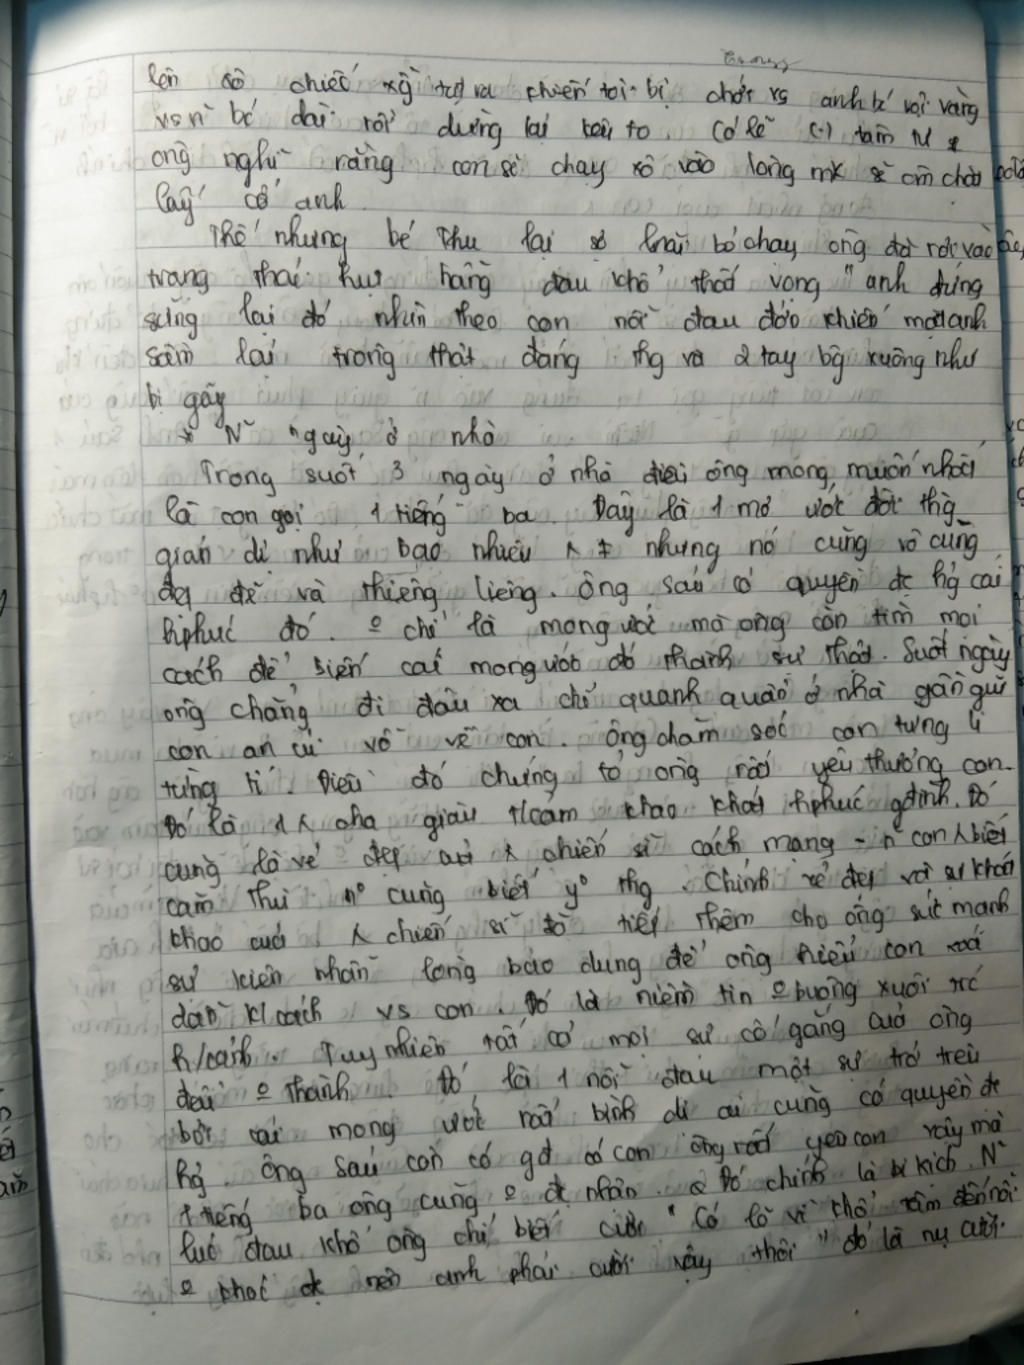 lên xô chiếc xg tạt ra khiến tôi bị chới vs anh bc vội vàng
vs n~ bc dài rồi dừng lại kêu to. Có lẽ (-) tâm tư
ông nghĩ rằng con sẽ chạy xô vào lòng mk sẽ ôm chặt
lấy cổ anh.
Thế nhưng bé Thu lại sợ hãi bỏ chạy ông đã rơi vào
trạng thái hụt hẫng đau khổ thất vọng "anh đứng
sững lại đó nhìn theo con nỗi đau đớn khiến mặt anh
sầm lại trông thật đáng thg và 2 tay buông xuống như
bị gãy
* N~ ngày ở nhà
Trong suốt 3 ngày ở nhà điều ông mong muốn nhất
là con gọi 1 tiếng ba. Đây là 1 mơ ước đời thg
giản dị như bao nhiêu ≠ nhưng nó cũng vô cùng
đẹp đẽ và thiêng liêng. Ông Sáu có quyền đc hg cái
hphúc đó. chỉ là mong ước mà ông còn tìm mọi
cách để biến cái mong ước đó thành sự thật. Suốt ngày
ông chẳng đi đâu xa chỉ quanh quẩn ở nhà gần gũi
con an ủi vỗ về con. Ông chăm sóc con từng li
từng tí. Điều đó chứng tỏ ông rất yêu thương con.
Đó là 1 cha giàu t/cảm khao khát hphúc gđình. Đó
cũng là vẻ đẹp của chiến sĩ cách mạng - con biết
căm thù cũng biết yêu thg. Chính vẻ đẹp và sự khát
khao của chiến sĩ đã tiếp thêm cho ông sức mạnh
sự kiên nhẫn lòng bao dung để ông hiểu con xoá
dần k/cách vs con. Đó là niềm tin buông xuôi trc
h/cảnh. Tuy nhiên tất cả mọi sự cố gắng của ông
đều thành. Đó là 1 nỗi đau một sự trớ trêu
bởi cái mong ước rất bình dị ai cũng có quyền đc
hg. Ông Sáu còn có gđ có con ông rất yêu con vậy mà
1 tiếng ba ông cũng đc nhận. Đó chính là bi kịch. N~
lúc đau khổ ông chỉ biết cười "Có lẽ vì khổ tâm đến nỗi
khóc đc nên anh phải cười vậy thôi" đó là nụ cười